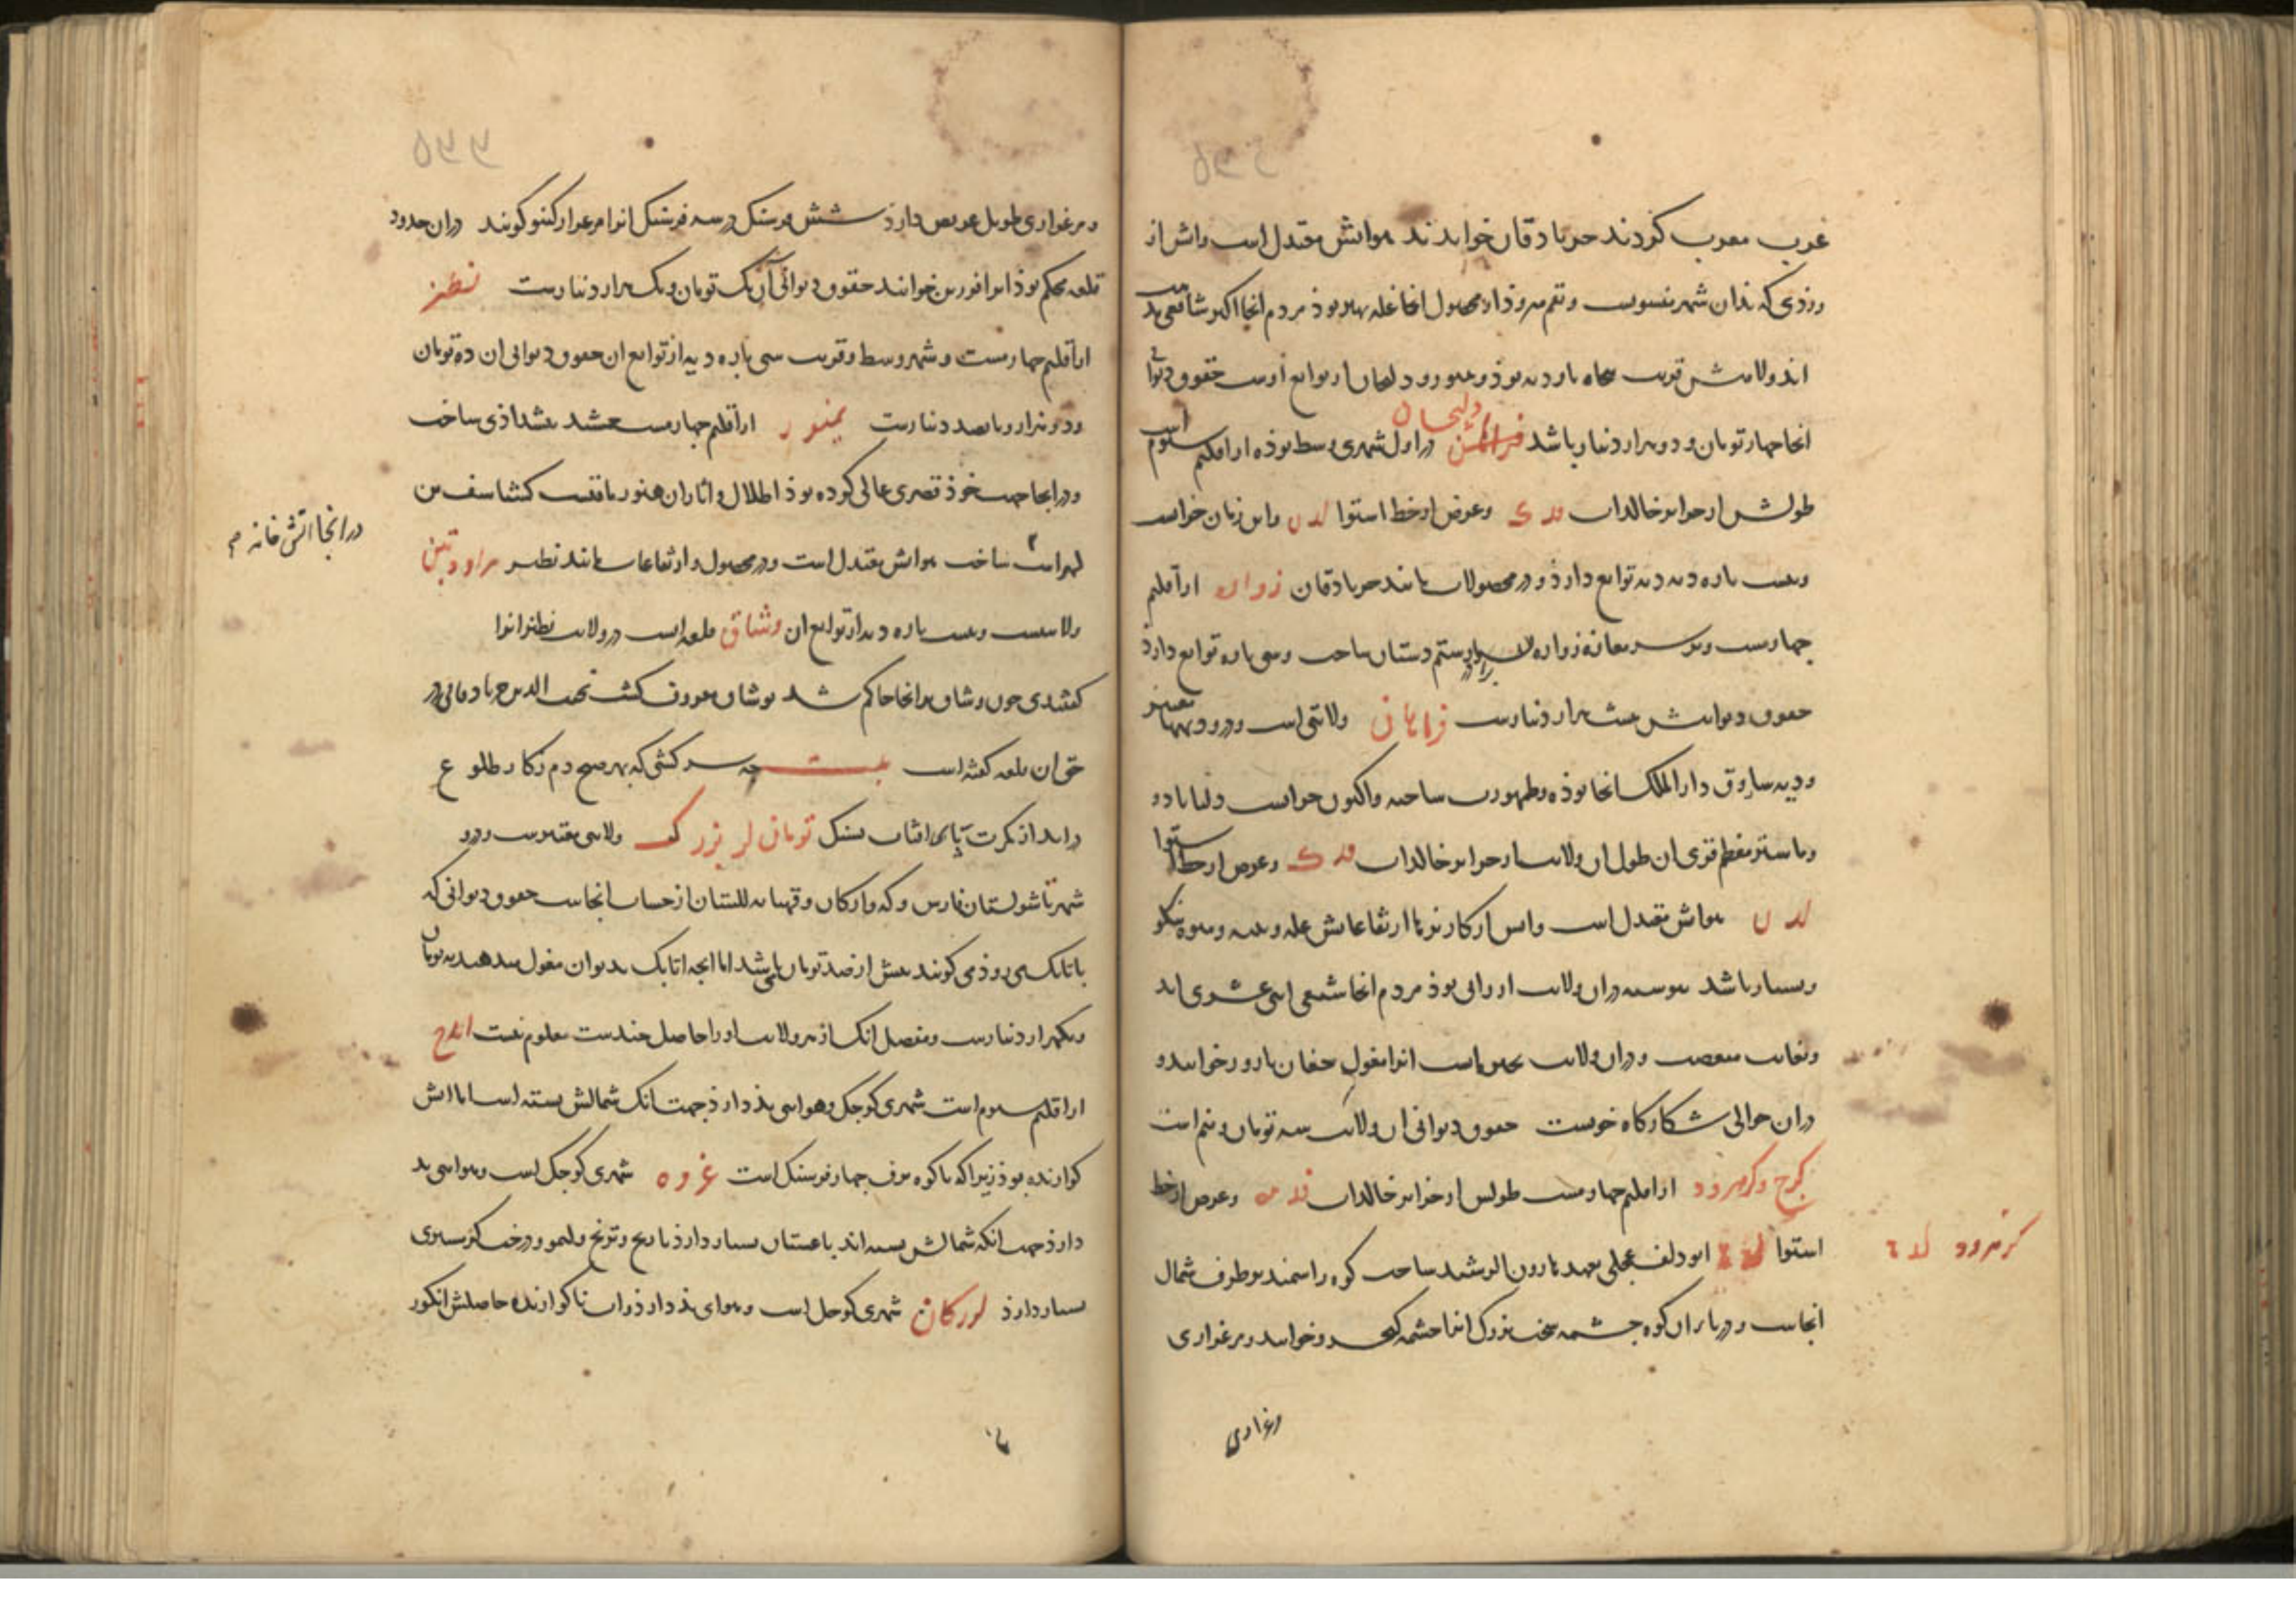 عرب معرب کردند جربادقان خواندند هوایش معتدل است و ابش از
روذی که بذان شهر منسوبست و قم میروذ از محصول انجا غله بهتر بوذ مردم انجا اکثر شافعی مذهب
اند ولایتش قریب پنجاه پاره دیه بوذ و دلیجان از توابع اوست حقوق دیوانی
انجا چهار تومان و دو هزار دینار باشد دلیجان در اول شهری وسط بوذه از اقلیم سیوم است
طولش از جزایر خالدات فه ک و عرض از خط استوا لد ن و این زمان خرابست
و بیست پاره دیه توابع دارذ و در محصولات مانند جربادقان زواره از اقلیم
چهارمست و بر سر مفازه زواره برادر رستم دستان ساخت و سی پاره توابع دارذ
حقوق دیوانیش هشت هزار دینارست فراهان ولایتی است و درو دیهها معتبر
و دیه ساروق دارالملک انجا بوذه و طهمورث ساخته و اکنون خرابست و دلیاباد و
و ماستر معظم قری ان طول ان ولایت از جزایر خالدات فه ک و عرض از خط استوا
لد ن هوایش معتدل است و ابش از کاریز ها ارتفاعاتش غله و پنبه و میوه نیکو
و بسیار باشد پیوسته دران ولایت ارزانی بوذ مردم انجا شیعی اثنی عشری اند
و بغایت متعصب و دران ولایت بحیره است انرا مغول جغان ناوور خوانند و
دران حوالی شکارگاه خوبست حقوق دیوانی ان ولایت سه تومان و نیم است
کرج و کرهرود از اقلیم چهارمست طولش از جزایر خالدات فد مه و عرض از خط
استوا ابودلف عجلی بعهد هارون الرشید ساخت کوه راسمند بر طرف شمال
کرهرود لد
انجاست و در پای ان کوه چشمه سخت بزرگ انرا چشمه کیخسرو خوانند و مرغزاری
مرغزاری
و مرغزاری طویل عریض دارذ شش فرسنگ در سه فرسنگ انرا مرغزار کیتو گویند دران حدود
قلعه محکم بوذ انرا فرزین خوانند حقوق دیوانی ان یک تومان و یک هزار دینارست نطنز
از اقلیم چهارمست و شهر وسط و قریب سی پاره دیه از توابع ان حقوق دیوانی ان ده تومان
و دو هزار و پانصد دینارست نیمور از اقلیم چهارمست جمشید پیشداذی ساخت
و در انجا جهت خوذ قصری عالی کرده بوذ اطلال و اثار ان هنوز باقیست گشتاسف بن
در انجا اتش خانه
لهراسف ساخت هوایش معتدل است و در محصول و ارتفاعات مانند نطنز مراوردین
ولایتیست و بیست پاره دیه از توابع ان وشاق قلعه است در ولایت نطنز انرا
گفتندی چون وشاق برانجا حاکم شد بوشاق معروف گشت نجیب الدین جربادقانی در
حق ان قلعه گفته است بیت چه سرکشی که بهر صبح دم ز کار طلوع
دراید از کمرت پای افتاب بسنگ تومان لر بزرگ ولایتی معتبرست و درو
شهرها شولستان فارس و که و ارکان و قهپایه للستان از حساب انجاست حقوق دیوانی که
باتابک می روذ می گویند بیش از صد تومان می باشد اما انچه اتابک بدیوان مغول میدهد نه تومان
و یکهزار دینارست و مفصل انک از هر ولایت او را حاصل چندست معلوم نیست ایذج
از اقلیم سیوم است شهری کوچک و هوایی بذ دارذ جهت انک شمالش بسته است اما ابش
گوارنده بوذ زیرا که تا کوه برف چهار فرسنگ است عروه شهری کوچک است و هوایی بد
دارذ جهت انکه شمالش بسته اند باغستان بسیار دارذ نارنج و ترنج و لیمو و درخت گرمسیری
بسیار دارذ لورکان شهری کوچک است و هوای بذ دارذ و اب ناگوارنده حاصلش انگور